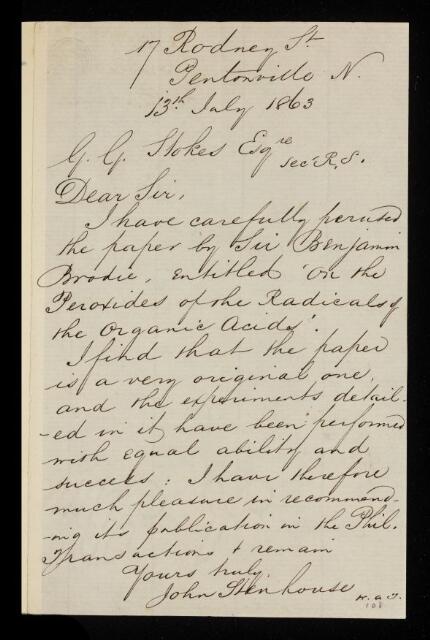 17 Rodney St
Pentonville N.
13th July 1863
G. G. Stokes Esqre
Sec R.S.
Dear Sir,
I have carefully perused
the paper by Sir Benjamin
Brodie, entitled 'On the
Peroxides of the Radicals of
the Organic Acids'.
I find that the paper
is a very original one,
and the experiments detail-
-ed in it have been performed
with equal ability and
success: I have therefore
much pleasure in recommend-
-ing its publication in the Phil.
Transactions & remain
Yours truly,
John Stenhouse
108